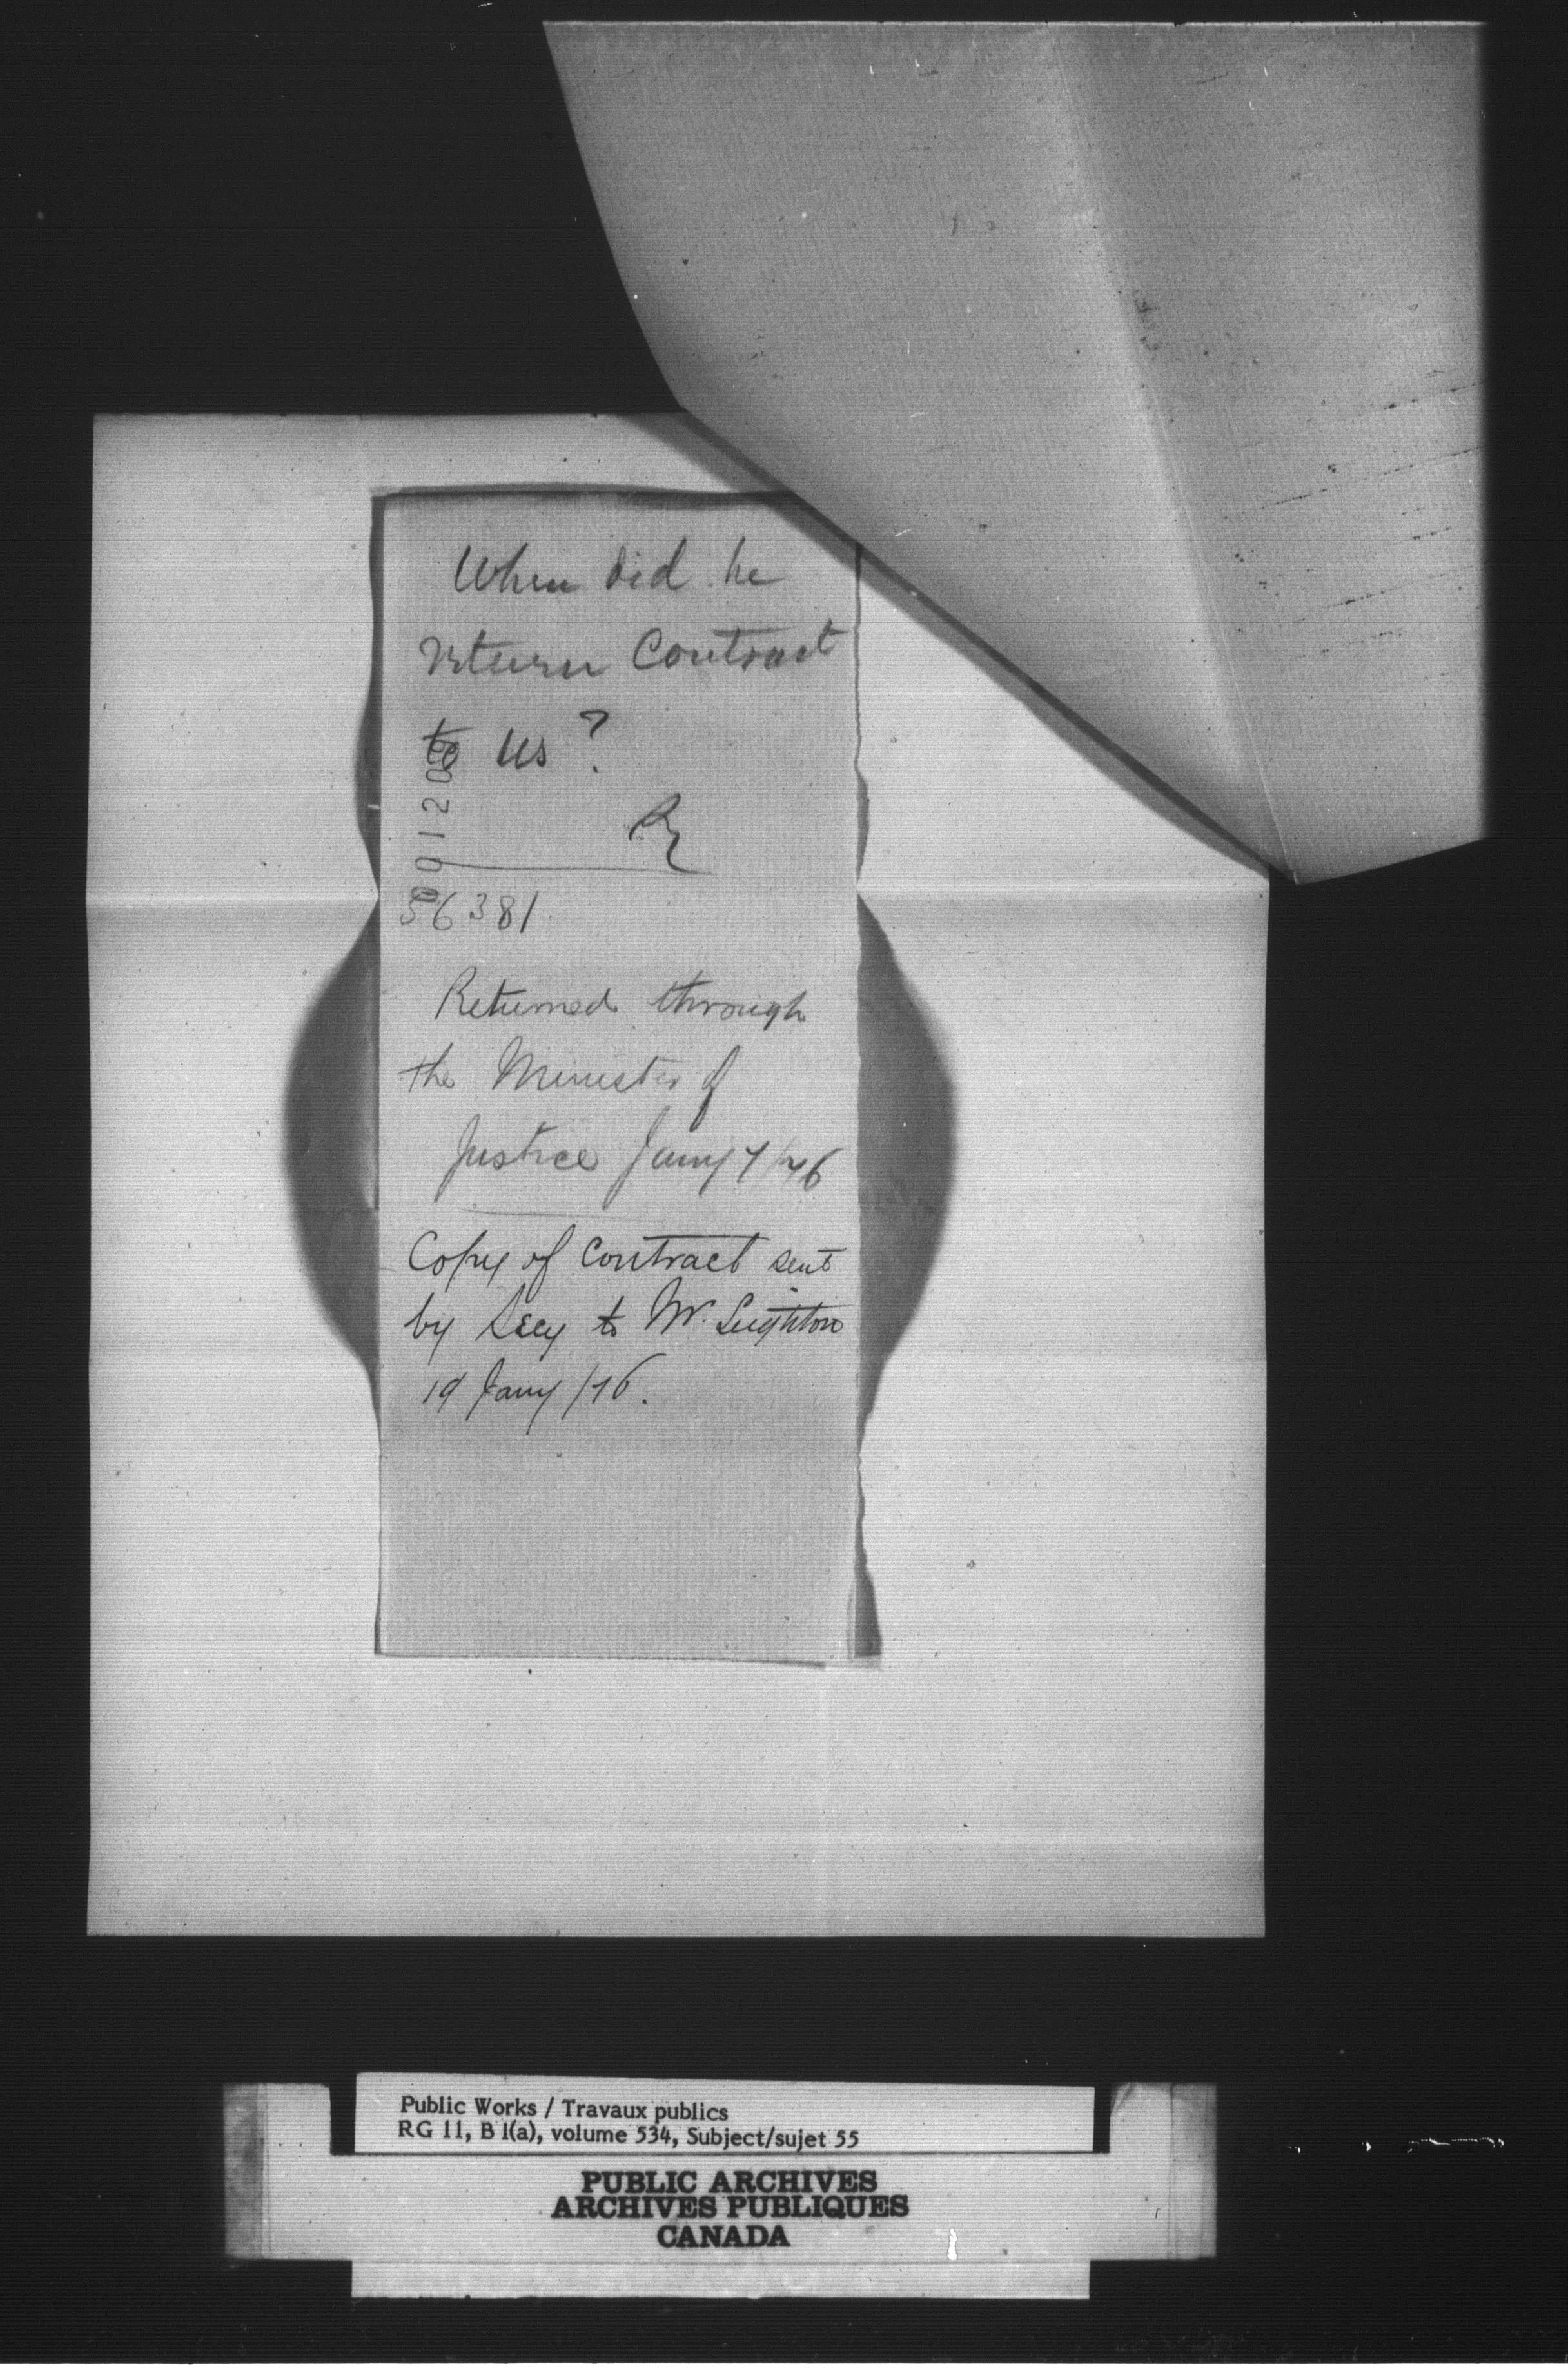 When did he
return Contract
to us?
56381
Returned through
the Minister of
Justice Jany 7/76
Copy of Contract sent
by Secy to Mr. Leighton
19 Jany /76.
Public Works / Travaux publics
RG 11, B 1(a), volume 534, Subject/sujet 55
PUBLIC ARCHIVES
ARCHIVES PUBLIQUES
CANADA